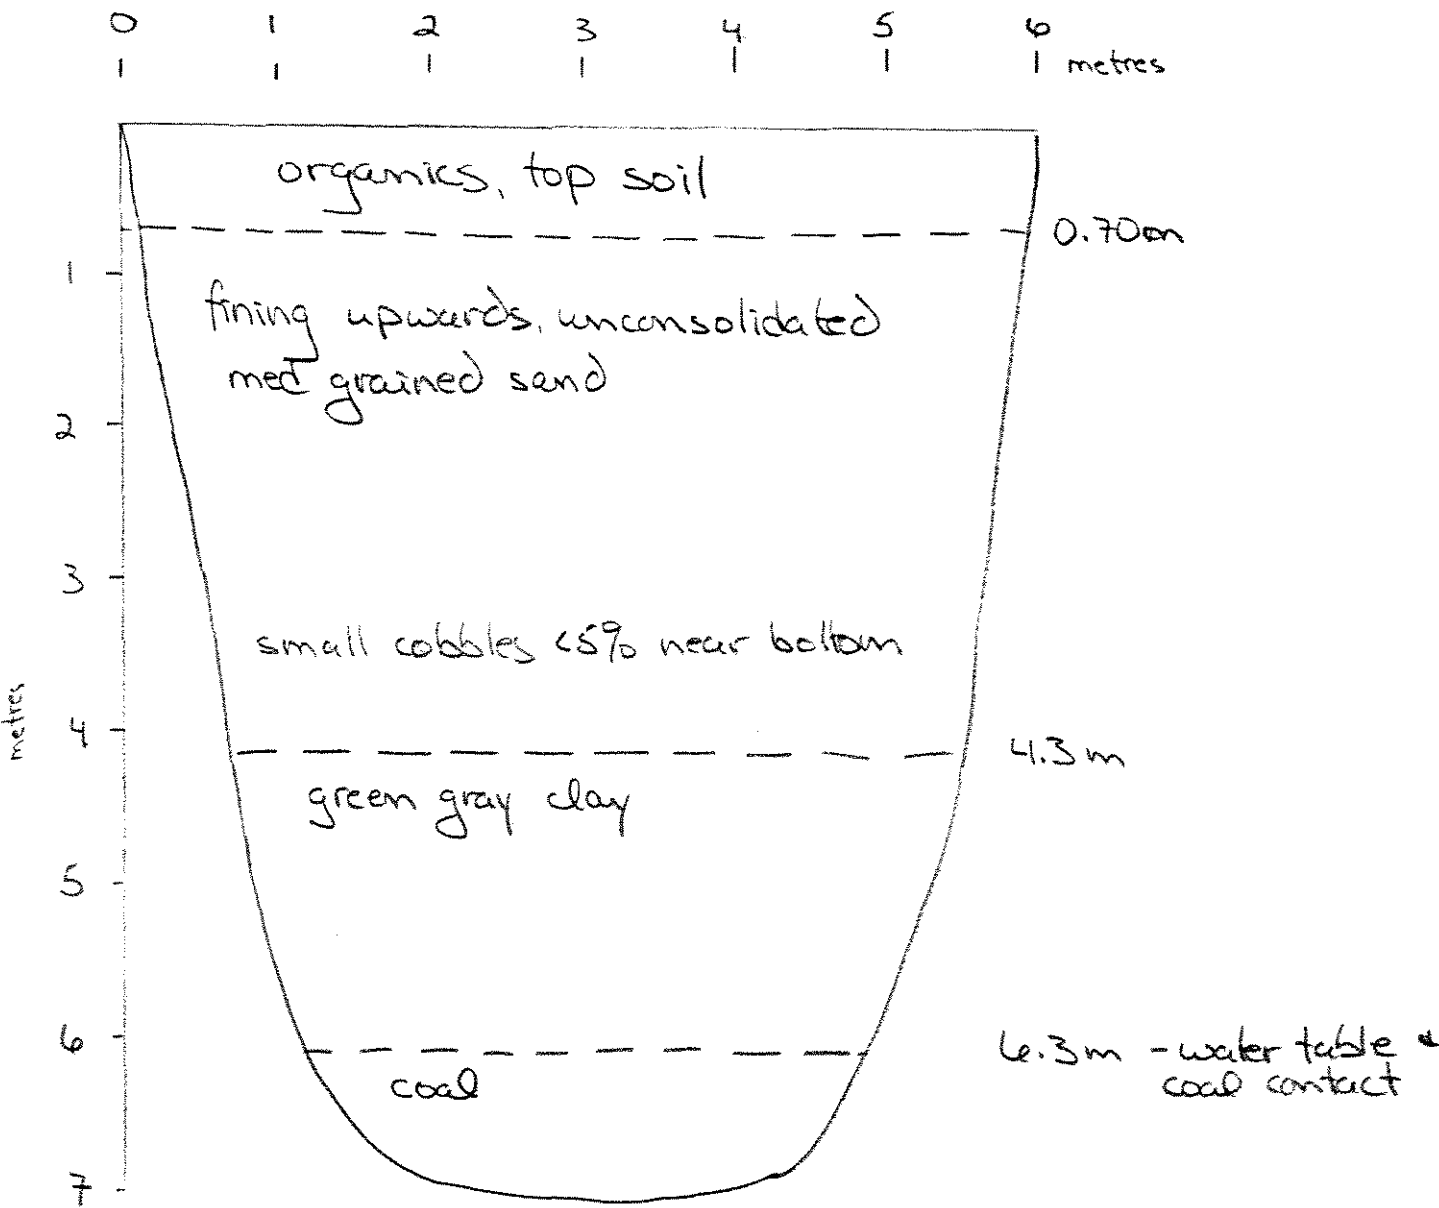 0 1 2 3 4 5 6
metres
organics, top soil
0.70m
1
fining upwards, unconsolidated
med grained sand
2
3
small cobbles <5% near bottom
metres
4
4.3m
green gray clay
5
6
6.3m - water table &
coal contact
coal
7